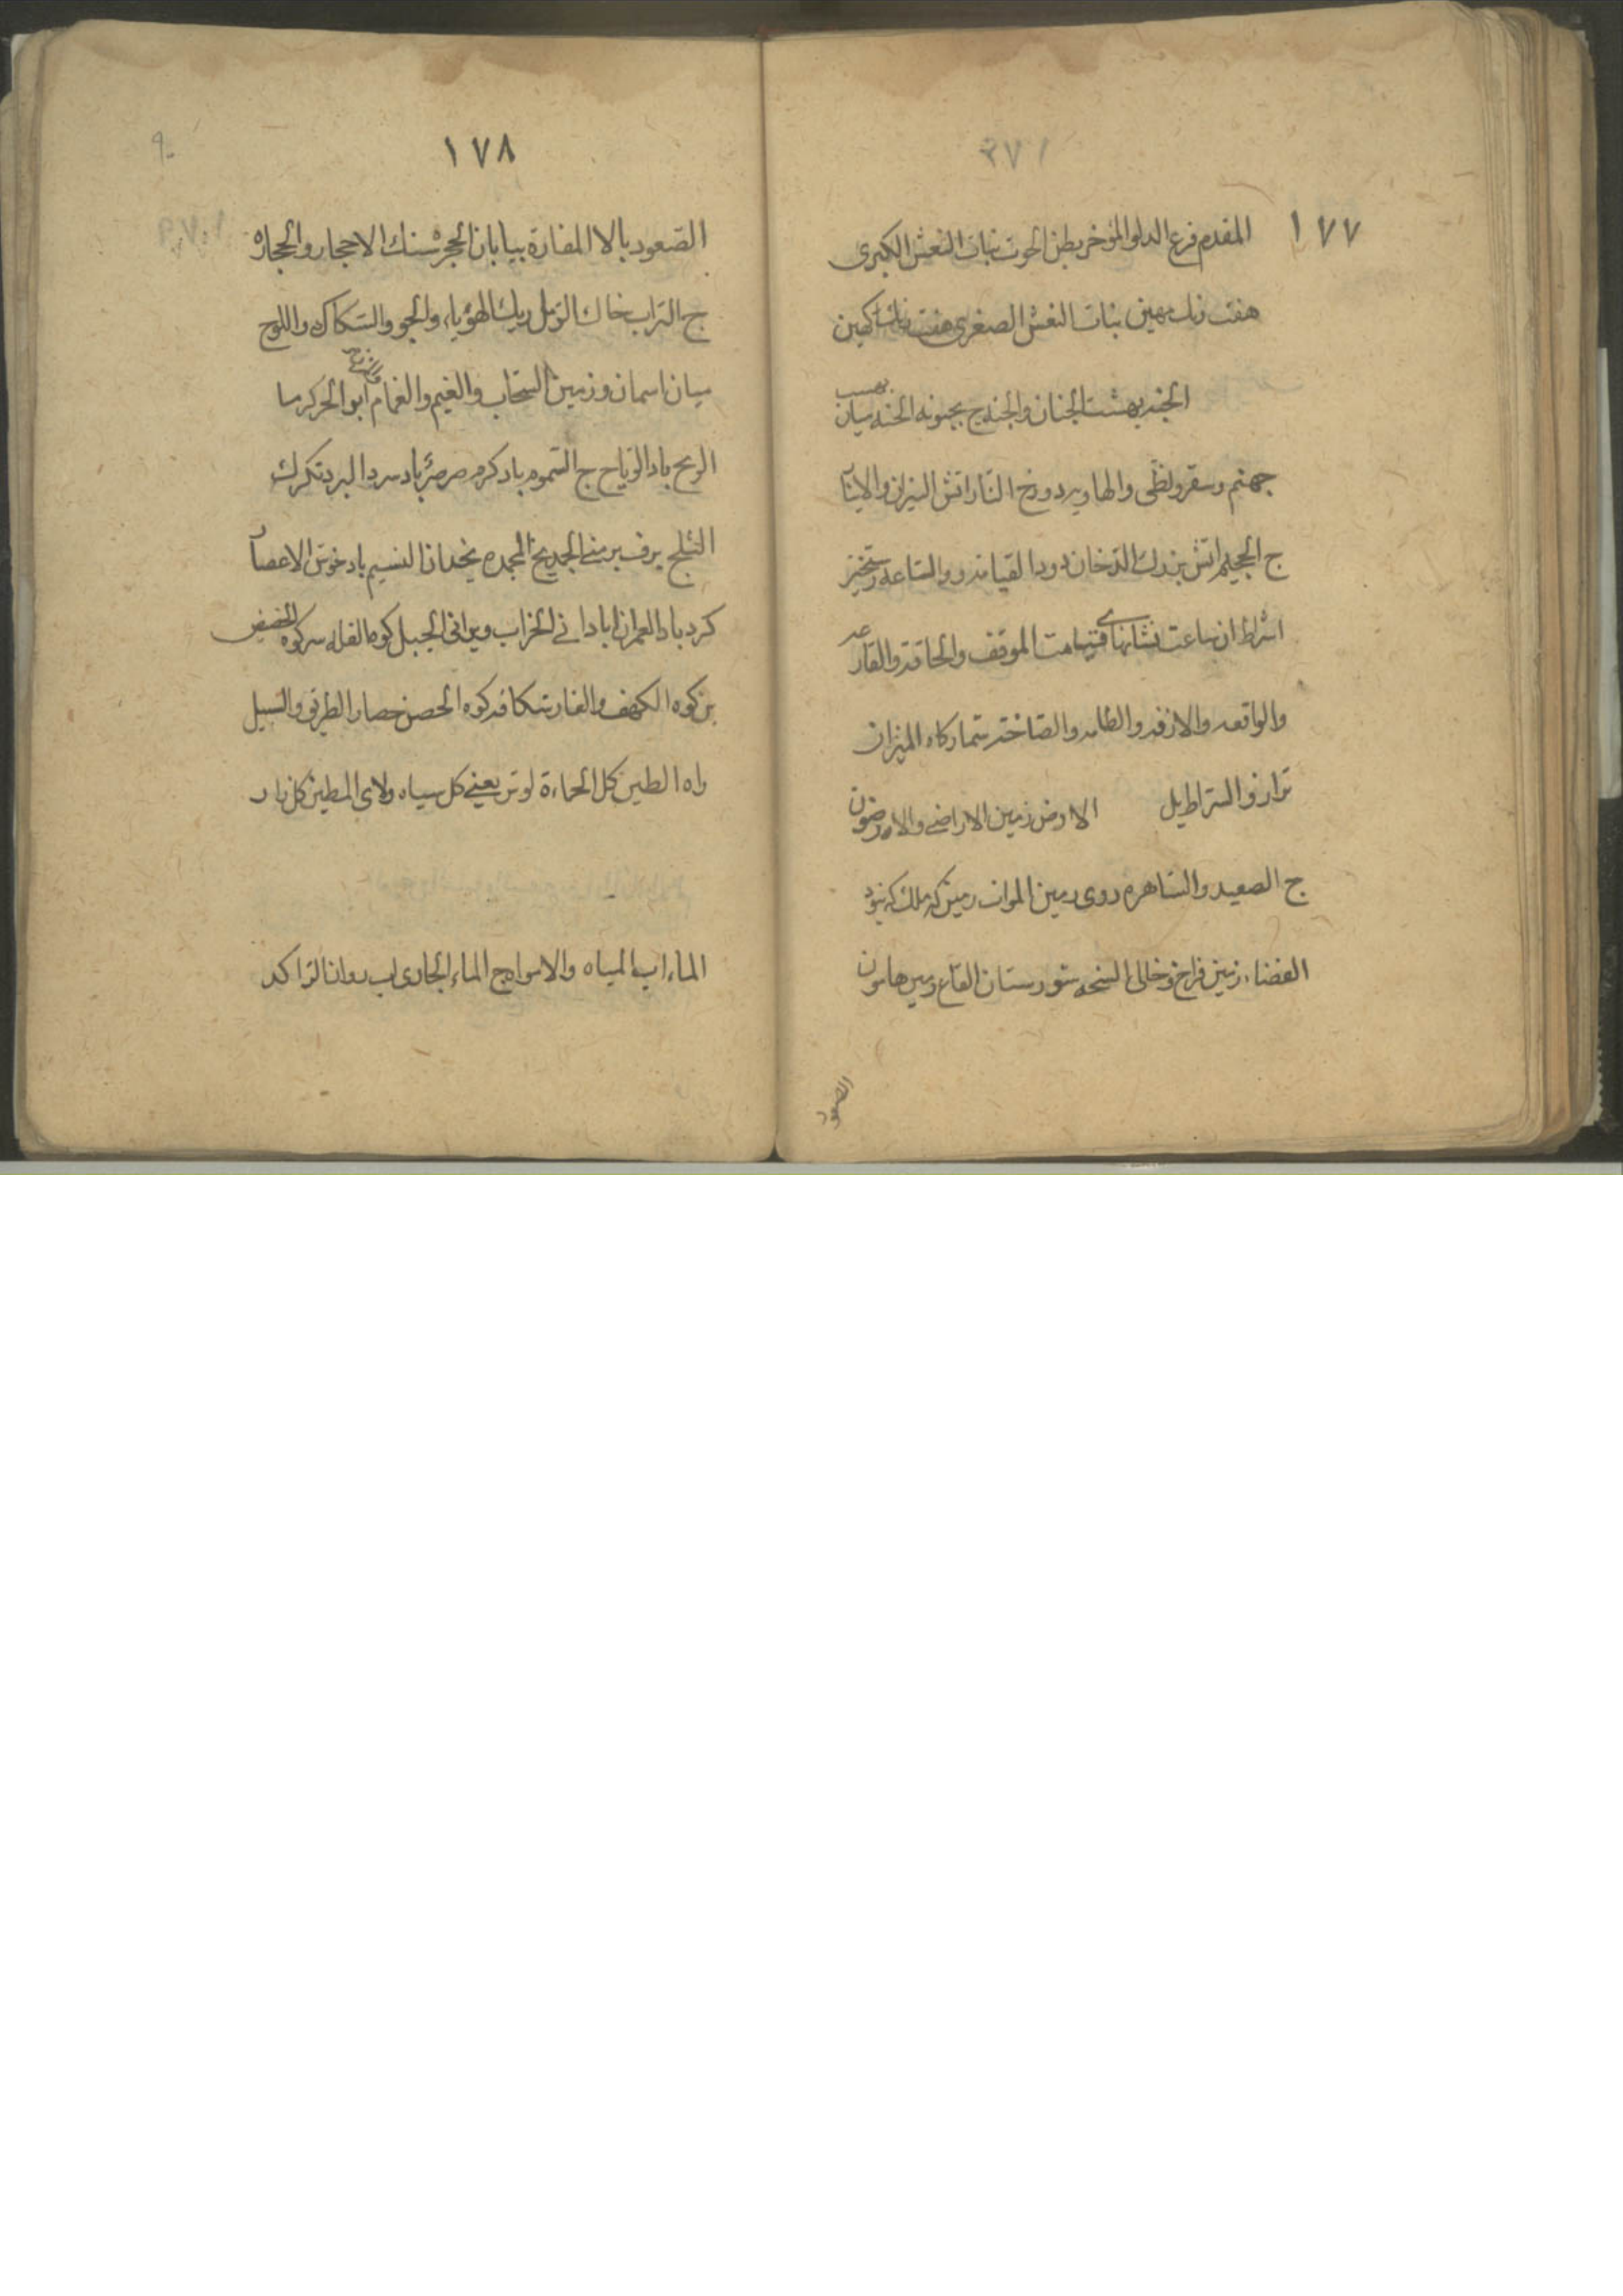 ١٧٧
المقدم فرع الدلو المؤخر بطن الحوت بنات النعش الكبرى
هفت رنك مهين بنات النعش الصغرى هفت رنك كهين
الجنه بهشت الجنان والجنه ج
جهنم وسقر ولظى والهاويه دوزخ النار اتش النيران والانيار
ج الجحيم اتش بزرك الدخان دود القيامه والساعه رستخيز
اشراط ان ساعت نشانهاى قيامت الموقف والحاقة والقارعه
والواقعه والازفه والطامه والصاخه شماركاه الميزان
ترازو الصراط پل الارض زمين الاراضى والارضون
ج الصعيد والساهره روى زمين الموات زمين كه ملك كه نبود
الفضاء زمين فراخ وخالى السبخه شورستان القاع زمين هامون
الصعود
١٧٨
الصعود بالا المفازة بيابان الحجر سنك الاحجار والحجاره
ج التراب خاك الرمل ريك الهوياء والجو والسكاك واللوح
ميان اسمان وزمين السحاب والغيم والغمام ابر الحر كرما
الريح باد الرياح ج السموم باد كرم صرصر باد سرد البرد تكرك
الثلج برف برمنى الجمد يخ المجمده يخدان النسيم باد خوش الاعصار
كرد باد العمران ابادانى الخراب ويرانى الجبل كوه القله سر كوه الحضيض
بن كوه الكهف والغار شكاف كوه الحصن حصار الطريق والسبيل
راه الطين كل الحماءة لوش يعنى كل سياه ولاى المطين كل زار
الماء اب المياه والامواه ج الماء الجارى اب روان الراكد